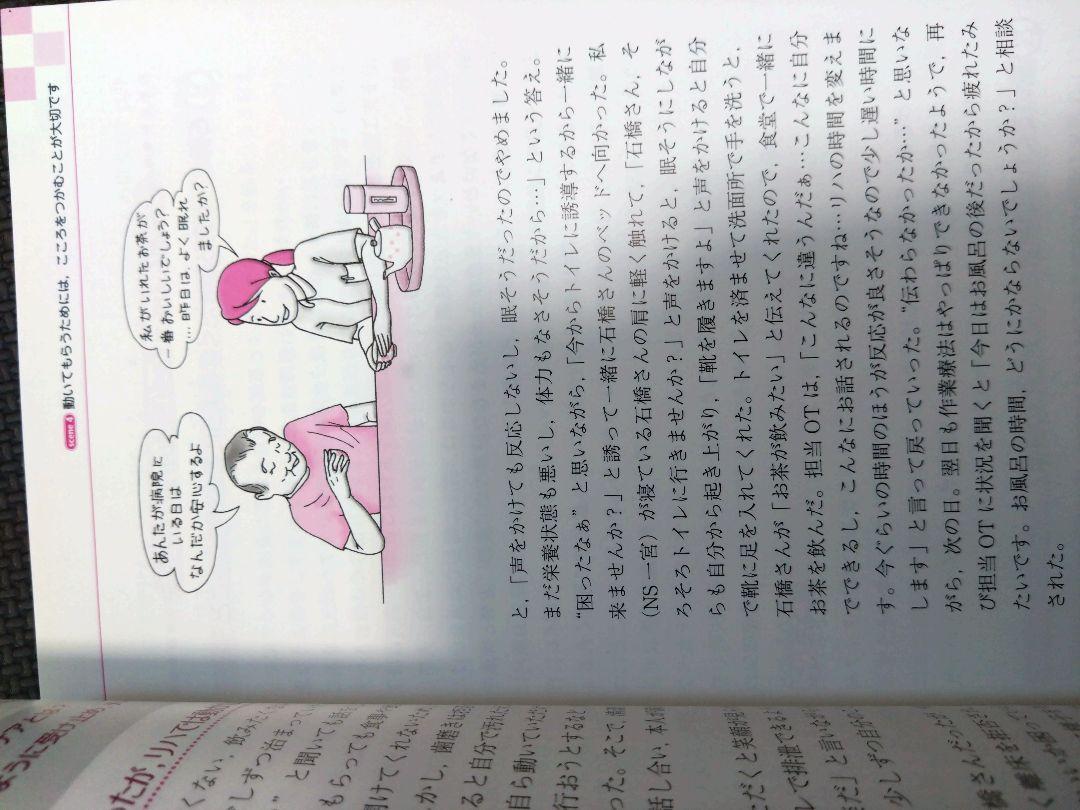 scene 4 動いてもらうためには，こころをつかむことが大切です
あんたが病院に
いる日は
なんだか安心するよ
私がいれたお茶が
一番おいしいでしょう？
…昨日は，よく眠れ
ましたか？
と，「声をかけても反応しないし，眠そうだったのでやめました。
まだ栄養状態も悪いし，体力もなさそうだから…」という答え。
“困ったなぁ”と思いながら，「今からトイレに誘導するから一緒に
来ませんか？」と誘って一緒に石橋さんのベッドへ向かった。私
（NS 一宮）が寝ている石橋さんの肩に軽く触れて，「石橋さん，そ
ろそろトイレに行きませんか？」と声をかけると，眠そうにしなが
らも自分から起き上がり，「靴を履きますよ」と声をかけると自分
で靴に足を入れてくれた。トイレを済ませて洗面所で手を洗うと，
石橋さんが「お茶が飲みたい」と伝えてくれたので，食堂で一緒に
お茶を飲んだ。担当 OT は，「こんなに違うんだぁ…こんなに自分
でできるし，こんなにお話されるのですね…リハの時間を変えま
す。今ぐらいの時間のほうが反応が良さそうなので少し遅い時間に
します」と言って戻っていった。“伝わらなかったか…”と思いな
がら，次の日。翌日も作業療法はやっぱりできなかったようで，再
び担当 OT に状況を聞くと「今日はお風呂の後だったから疲れたみ
たいです。お風呂の時間，どうにかならないでしょうか？」と相談
された。
ったが，リハでは
くない，飲みたくな
少しずつ治まってい
”と聞いても
もらっても食事
開けてくれない
かし，歯磨きは
ると自分で汚れ
自ら動いていた
行おうとするなど
った。そこで，
話し合い，本人
ただくと笑顔が
レで排泄できるよ
だ」と言いな
少しずつ自分
橋さんだったが